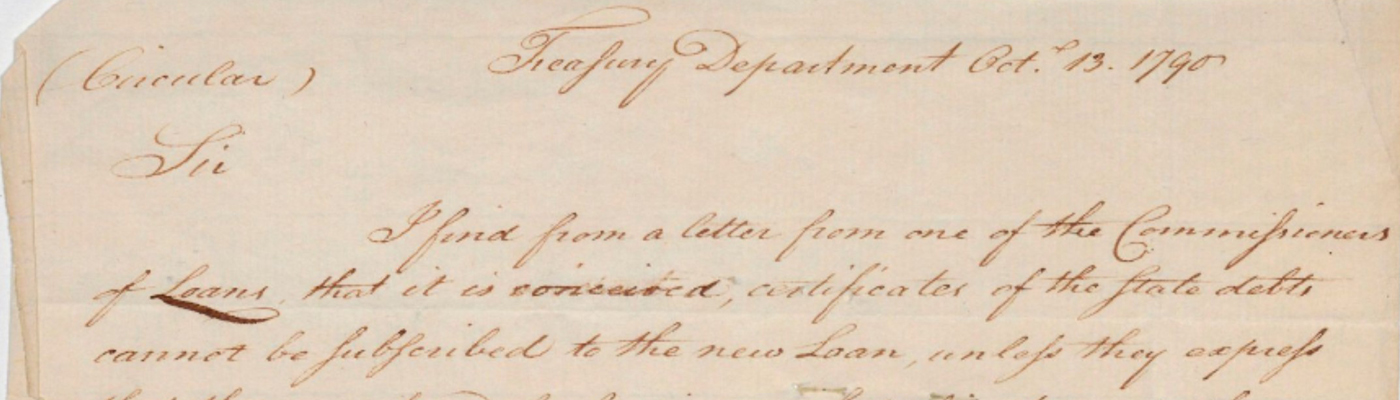 (Circular) Treaſury Department Oct.ʳ 13. 1790
Sir
I find from a letter from one of the Commiſsioners
of Loans, that it is conceived, certificates of the ſtate debts
cannot be ſubſcribed to the new Loan, unleſs they expreſs